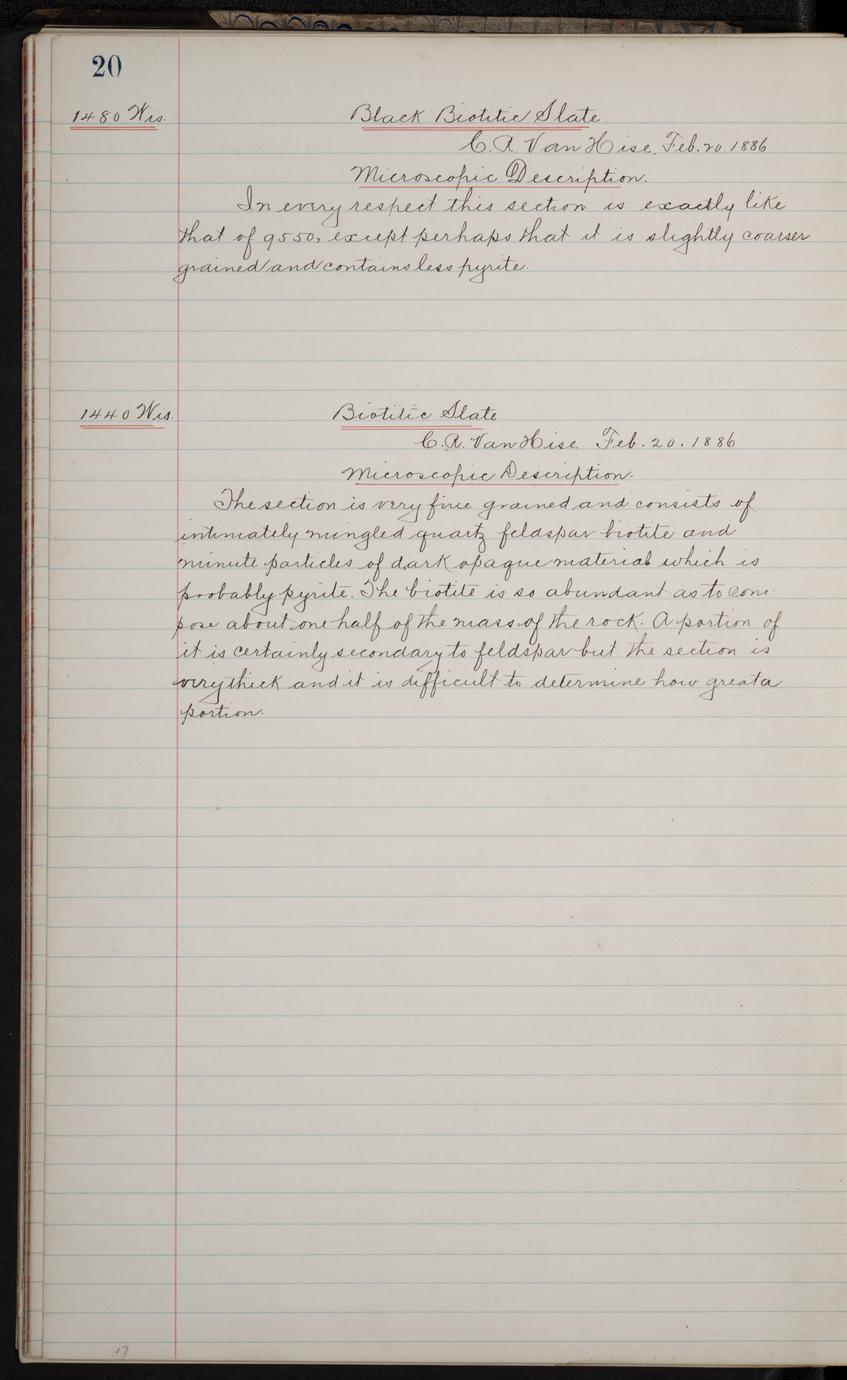 20
1480 Wis.
Black Biotitic Slate.
C. R. Van Hise, Feb. 20 1886
Microscopic Description.
In every respect this section is exactly like
that of 9550, except perhaps that it is slightly coarser
grained and contains less pyrite.
1440 Wis.
Biotitic Slate
C. R. Van Hise. Feb. 20. 1886
Microscopic Description.
The section is very fine grained and consists of
intimately mingled quartz feldspar biotite and
minute particles of dark opaque material which is
probably pyrite. The biotite is so abundant as to com-
pose about one half of the mass of the rock. A portion of
it is certainly secondary to feldspar but the section is
very thick and it is difficult to determine how great a
portion.
17